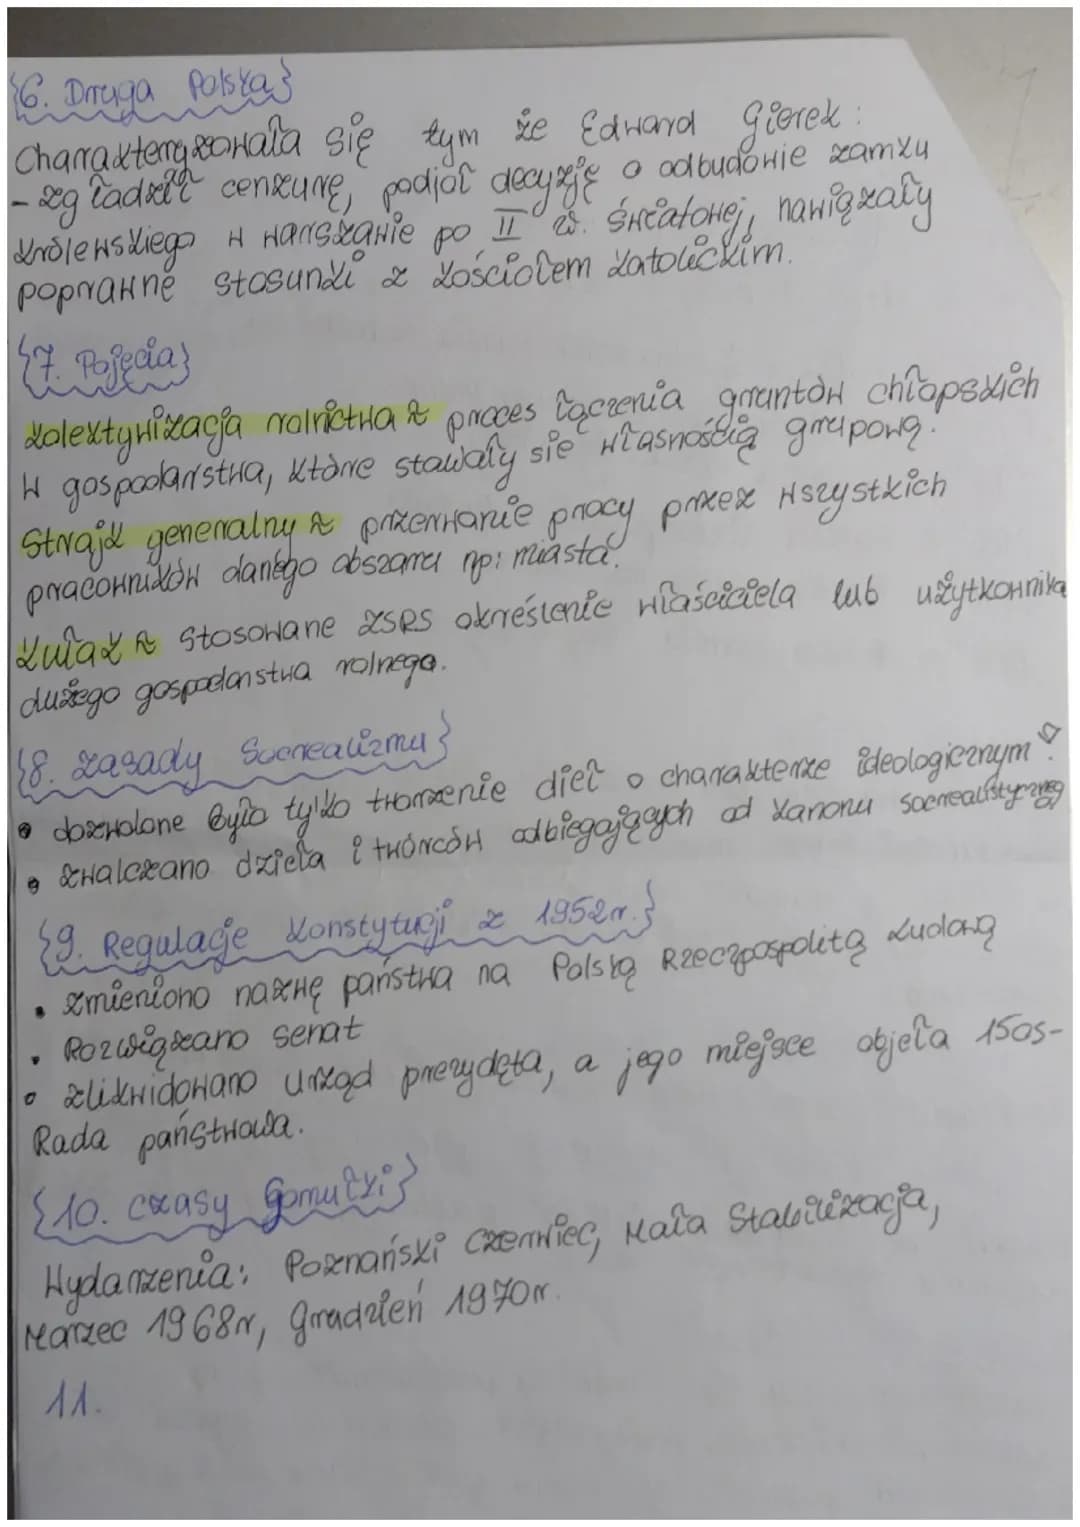 {6. Druga Polska}
Charakteryzowała się tym że Edward Gierek:
- zgładził cenzurę, podjoł decyzję o odbudowie zamku
Królewskiego w Warszawie po II w. Światowej, nawiązały
poprawne stosunki z kościołem katolickim.
{7. Pojęcia}
Kolektywizacja rolnictwa ~ proces łączenia gruntów chłopskich
w gospodarstwa, które stawały sie własnością grupową.
Strajk generalny ~ przerwanie pracy przez wszystkich
pracowników danego obszaru np: miasta.
Kułak ~ Stosowane ZSRS określenie właściciela lub użytkownika
dużego gospodarstwa rolnego.
{8. Zasady Socrealizmu}
• dozwolone było tylko tworzenie dieł o charakterze ideologicznym
• zwalczano dzieła i twórców odbiegających od kanonu socrealistycznego
{9. Regulacje Konstytucji z 1952r.}
• zmieniono nazwę państwa na Polską Rzeczpospolitą Ludową
• Rozwiązano senat
• zlikwidowano urząd prezydęta, a jego miejsce objeła 15os-
Rada państwowa.
{10. Czasy Gomułki}
Wydarzenia: Poznański Czerwiec, Mała Stabilizacja,
Marzec 1968r, grudzień 1970r.
11.